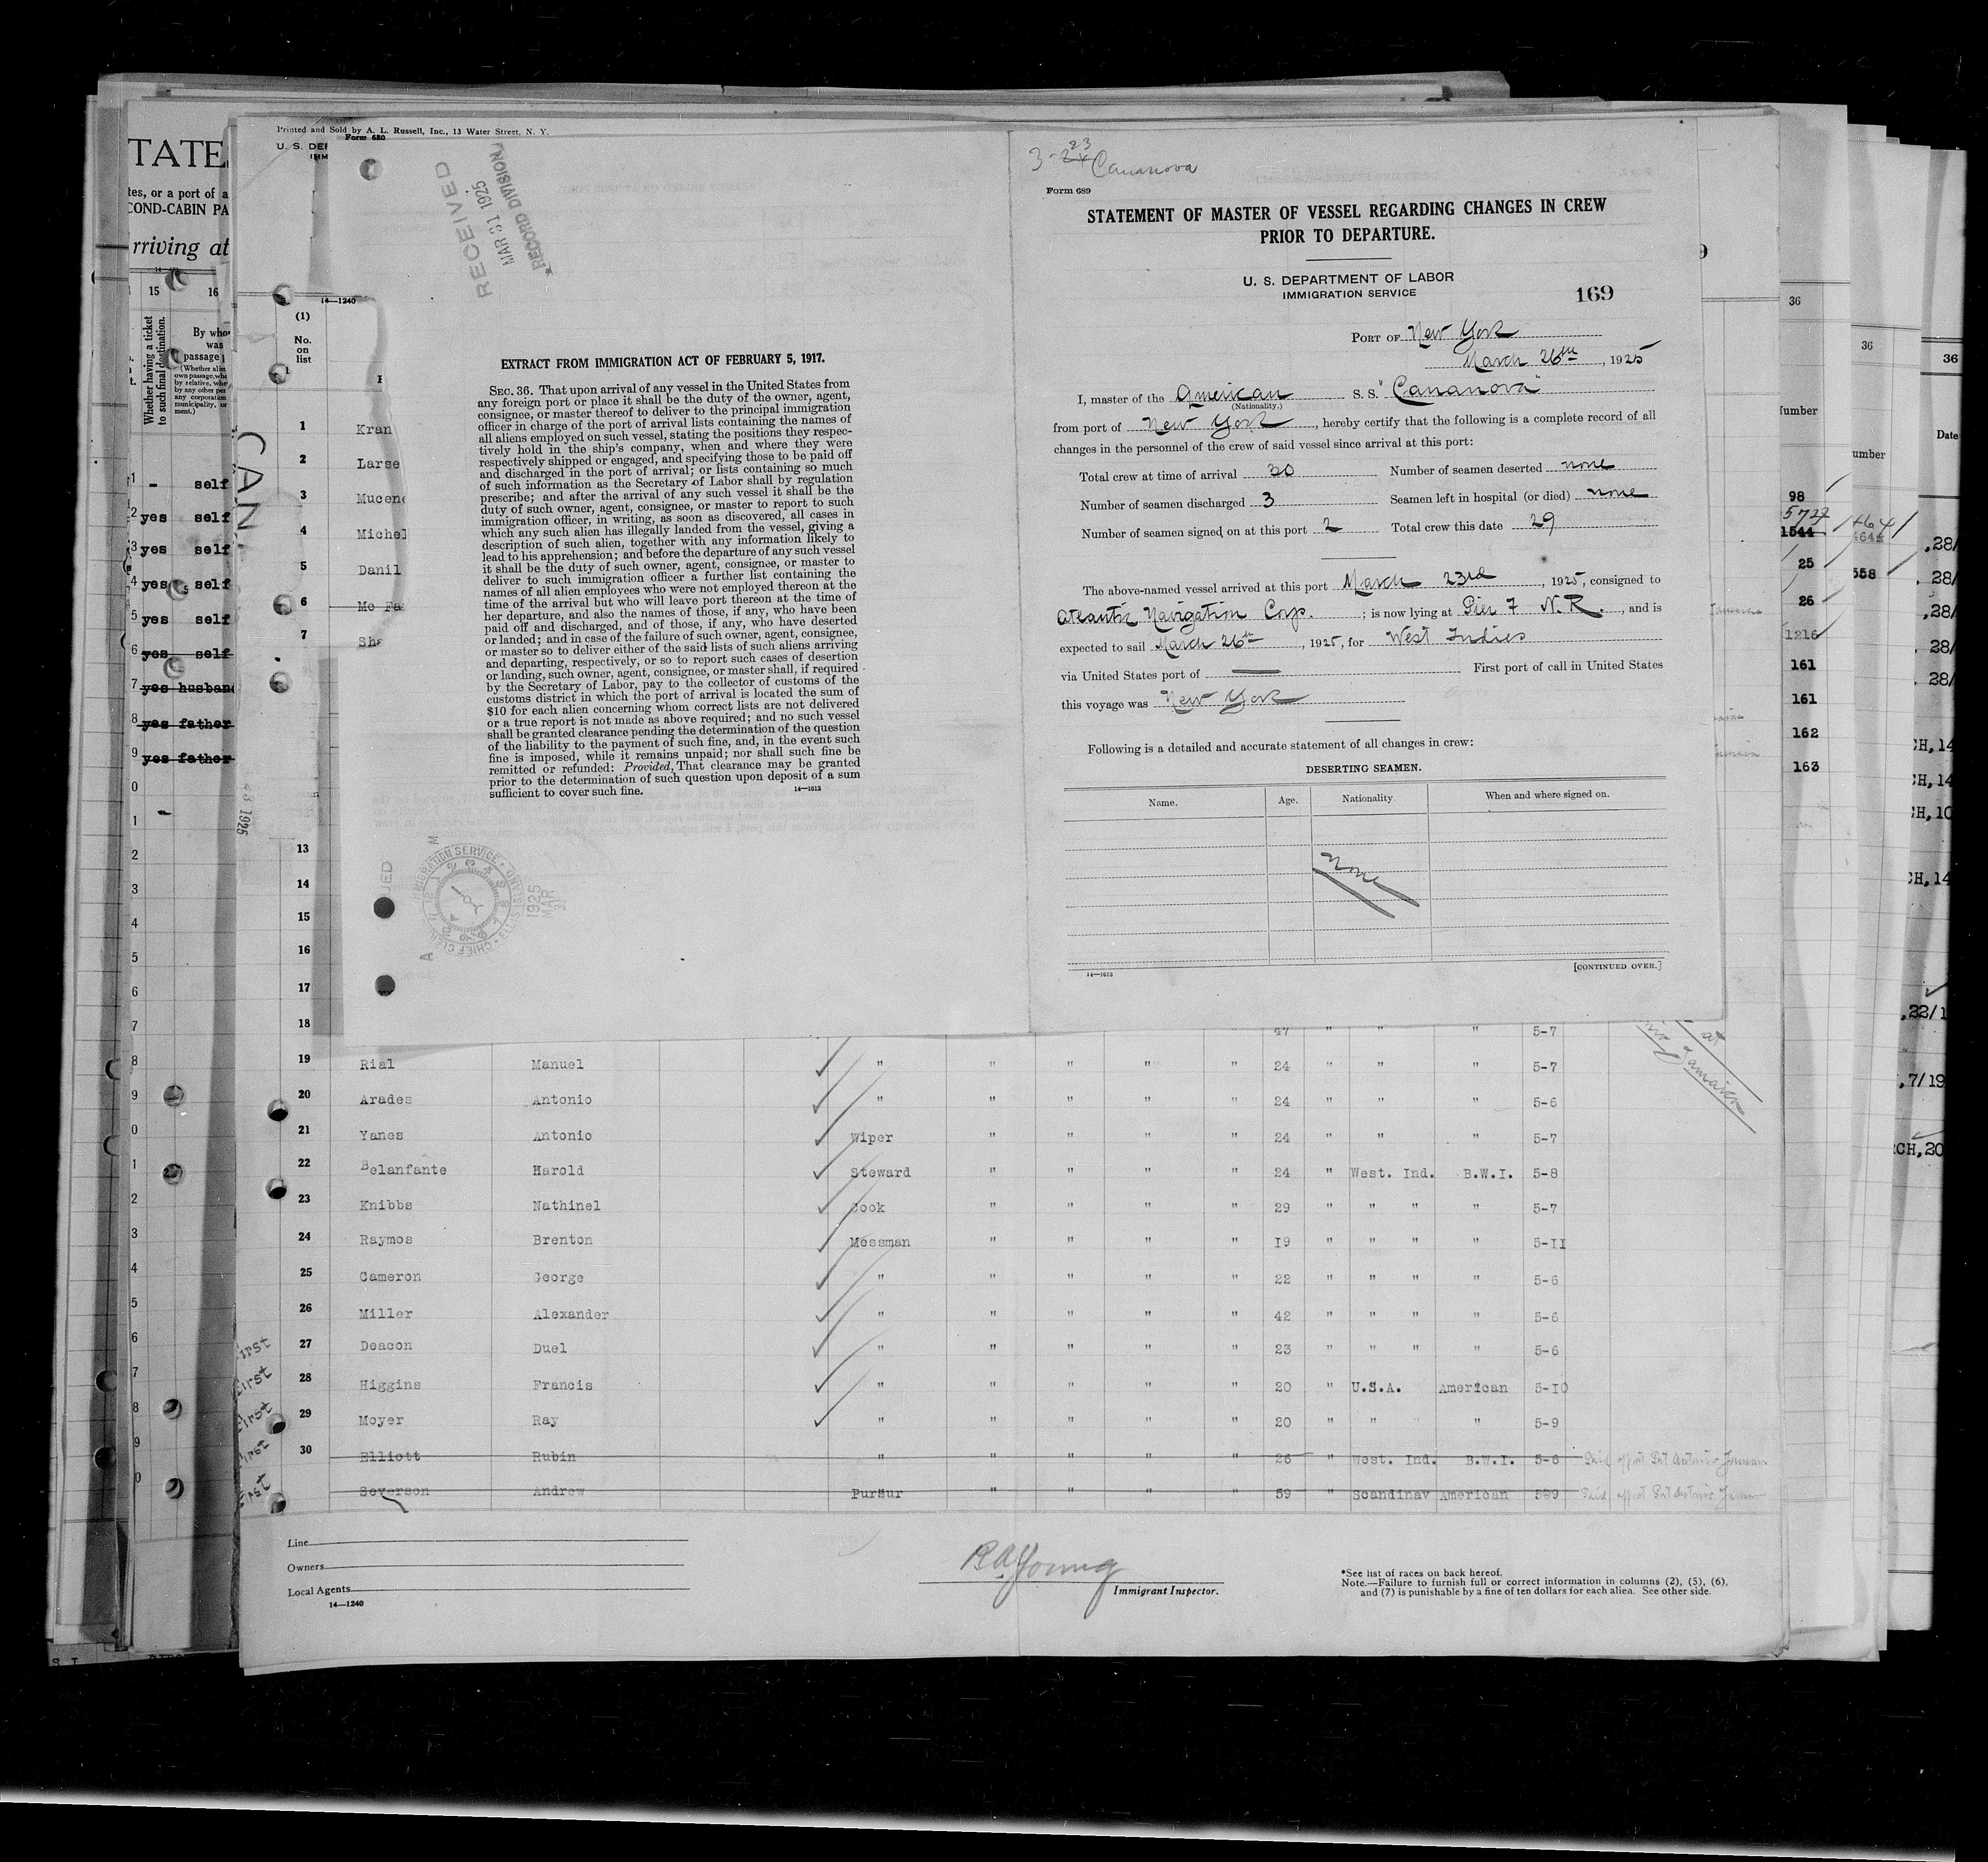 Printed and Sold by A. L. Russell, Inc., 13 Water Street, N. Y.
Form 680
U. S. DEP
RECEIVED
MAR 31 1925
RECORD DIVISION
14—1240
(1)
No.
on
list
EXTRACT FROM IMMIGRATION ACT OF FEBRUARY 5, 1917.
SEC. 36. That upon arrival of any vessel in the United States from
any foreign port or place it shall be the duty of the owner, agent,
consignee, or master thereof to deliver to the principal immigration
officer in charge of the port of arrival lists containing the names of
all aliens employed on such vessel, stating the positions they respec-
tively hold in the ship's company, when and where they were
respectively shipped or engaged, and specifying those to be paid off
and discharged in the port of arrival; or lists containing so much
of such information as the Secretary of Labor shall by regulation
prescribe; and after the arrival of any such vessel it shall be the
duty of such owner, agent, consignee, or master to report to such
immigration officer, in writing, as soon as discovered, all cases in
which any such alien has illegally landed from the vessel, giving a
description of such alien, together with any information likely to
lead to his apprehension; and before the departure of any such vessel
it shall be the duty of such owner, agent, consignee, or master to
deliver to such immigration officer a further list containing the
names of all alien employees who were not employed thereon at the
time of the arrival but who will leave port thereon at the time of
her departure, and also the names of those, if any, who have been
paid off and discharged, and of those, if any, who have deserted
or landed; and in case of the failure of such owner, agent, consignee,
or master so to deliver either of the said lists of such aliens arriving
and departing, respectively, or so to report such cases of desertion
or landing, such owner, agent, consignee, or master shall, if required
by the Secretary of Labor, pay to the collector of customs of the
customs district in which the port of arrival is located the sum of
$10 for each alien concerning whom correct lists are not delivered
or a true report is not made as above required; and no such vessel
shall be granted clearance pending the determination of the question
of the liability to the payment of such fine, and, in the event such
fine is imposed, while it remains unpaid; nor shall such fine be
remitted or refunded: Provided, That clearance may be granted
prior to the determination of such question upon deposit of a sum
sufficient to cover such fine.
14—1613
3-23 Cananova
Form 689
STATEMENT OF MASTER OF VESSEL REGARDING CHANGES IN CREW
PRIOR TO DEPARTURE.
U. S. DEPARTMENT OF LABOR
IMMIGRATION SERVICE
169
PORT OF New York
March 26th, 1925
I, master of the American S. S. "Cananova"
(Nationality.)
from port of New York, hereby certify that the following is a complete record of all
changes in the personnel of the crew of said vessel since arrival at this port:
Total crew at time of arrival 30 Number of seamen deserted none
Number of seamen discharged 3 Seamen left in hospital (or died) none
Number of seamen signed on at this port 2 Total crew this date 29
The above-named vessel arrived at this port March 23rd, 1925, consigned to
Atlantic Navigation Corp.; is now lying at Pier 7 N. R., and is
expected to sail March 26th, 1925, for West Indies
via United States port of — First port of call in United States
this voyage was New York
Following is a detailed and accurate statement of all changes in crew:
DESERTING SEAMEN.
Name. Age. Nationality When and where signed on.
none
14—1613 [CONTINUED OVER.]
1 Kran
2 Larse
3 Mucen
4 Michel
5 Danil
6 Mc Fa
7 Sha
13
14
15
16
17
18 47 " " " 5-7
19 Rial Manuel " " " " " 24 " " " 5-7
20 Arades Antonio " " " " " 24 " " " 5-6
21 Yanes Antonio Wiper " " " " 24 " " " 5-7
22 Belanfante Harold Steward " " " " 24 " West. Ind. B.W.I. 5-8
23 Knibbs Nathinel Cook " " " " 29 " " " " 5-7
24 Raymos Brenton Messman " " " " 19 " " " " 5-11
25 Cameron George " " " " " 22 " " " " 5-6
26 Miller Alexander " " " " " 42 " " " " 5-6
27 Deacon Duel " " " " " 23 " " " " 5-6
28 Higgins Francis " " " " " 20 " U.S.A. American 5-10
29 Moyer Ray " " " " " 20 " " " 5-9
30 Elliott Rubin " " " " " 26 " West. Ind. B.W.I. 5-6 Paid off at Port Antonio Jamaica
Severson Andrew Pursur " " " " 59 " Scandinav American 5-9 Paid off at Port Antonio
Line
Owners
Local Agents
14—1240
R A Young
Immigrant Inspector.
*See list of races on back hereof.
Note.—Failure to furnish full or correct information in columns (2), (5), (6),
and (7) is punishable by a fine of ten dollars for each alien. See other side.
TATE
tes, or a port of a
COND-CABIN PA
rriving at
15 16
Whether having a ticket
to such final destination.
By who
was
passage
- self
yes self
yes self
yes self
yes self
yes self
yes husban
yes father
yes father
36
98
1544
25
26
1216
161
161
162
163
36
558
36
Date